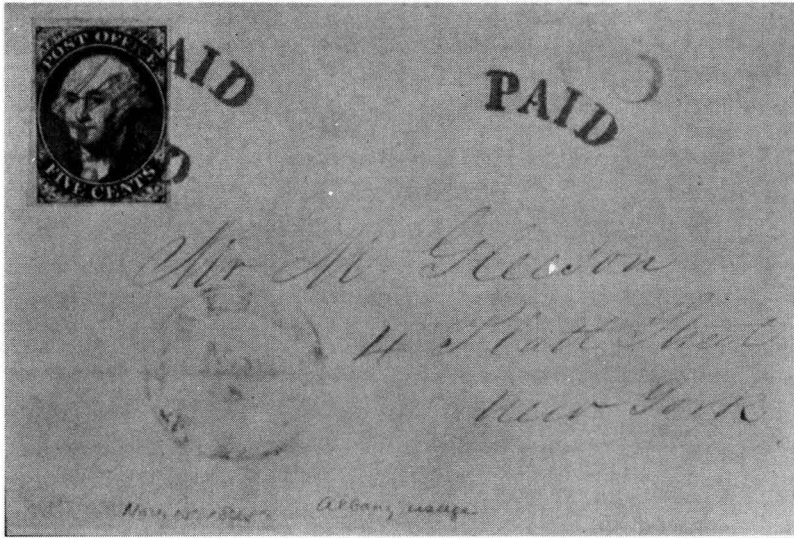 POST OFFICE
FIVE CENTS
AID
D
PAID
Mr M. Gleeson
4 Platt Street
New York
Albany usage